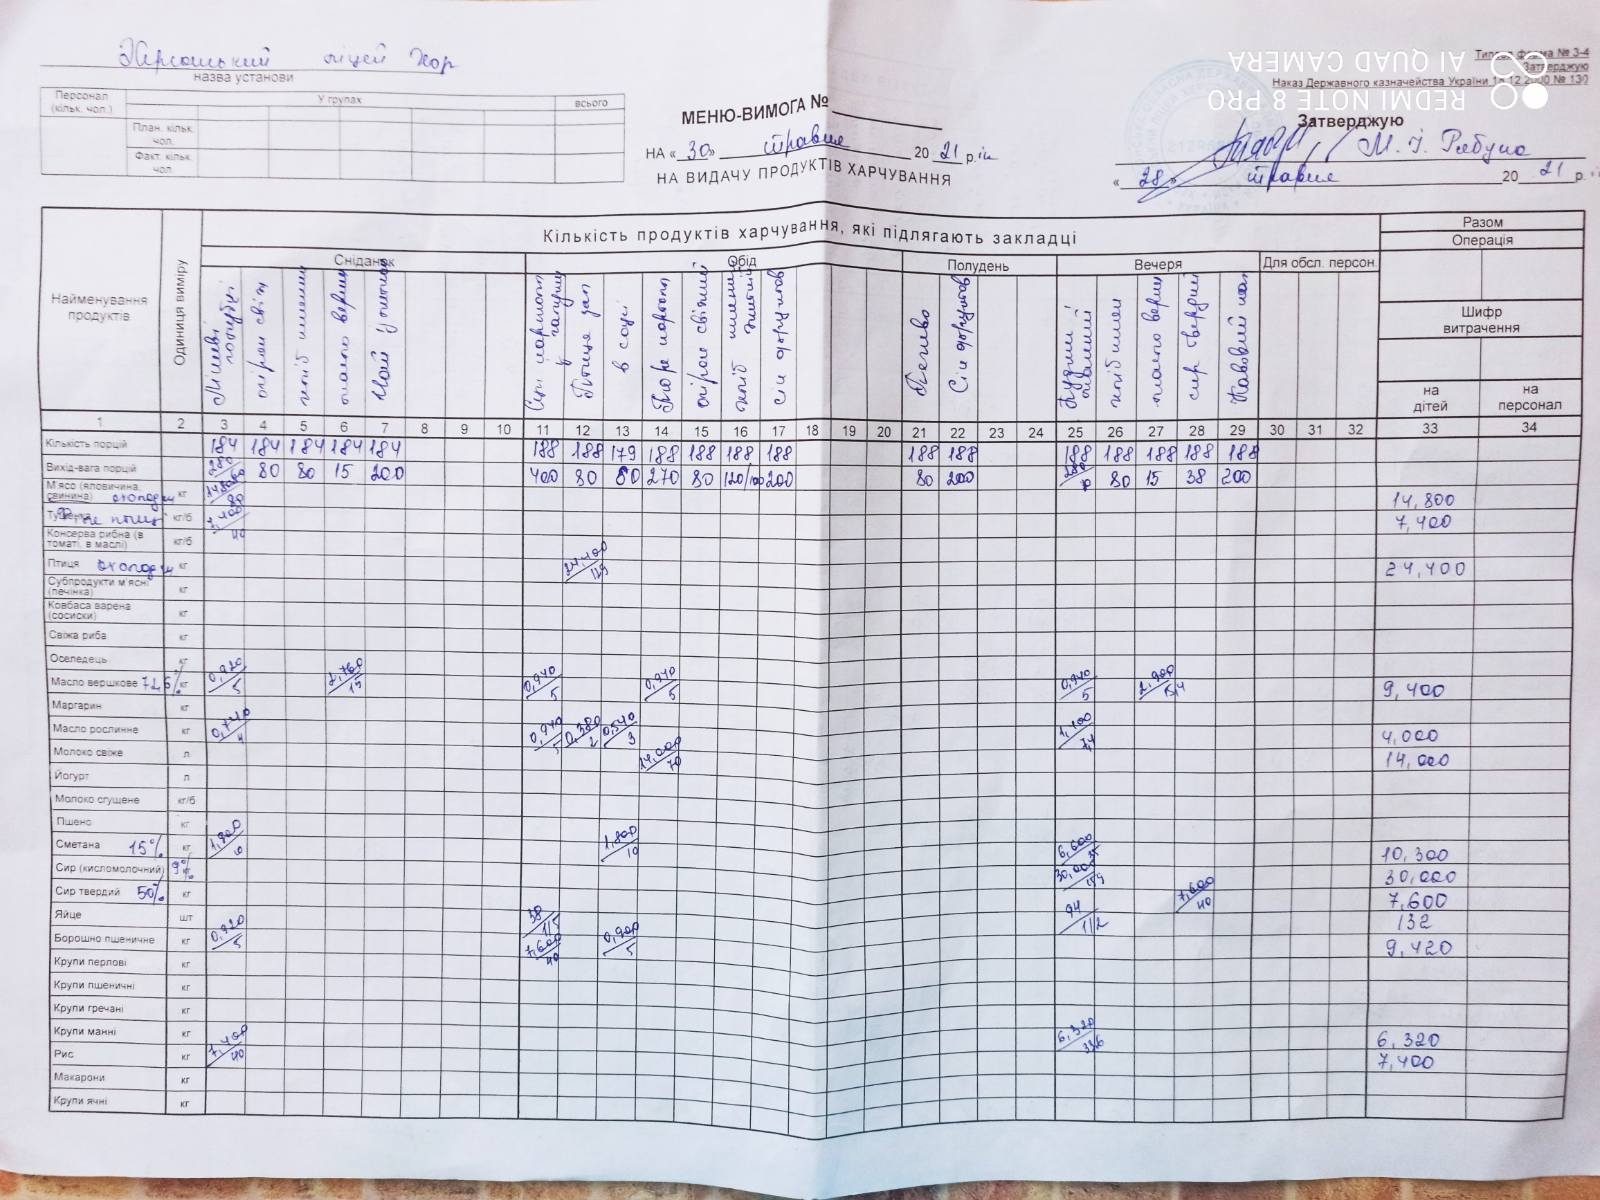 Херсонський ліцей ХОР
назва установи
Типова форма № 3-4
Затверджую
Наказ Державного казначейства України 18.12.2000 № 130
AI QUAD CAMERA
REDMI NOTE 8 PRO
Персонал (кільк. чол.)
У групах
всього
План. кільк. чол.
Факт. кільк. чол.
МЕНЮ-ВИМОГА №
НА «30» травня 2021 рік
НА ВИДАЧУ ПРОДУКТІВ ХАРЧУВАННЯ
Затверджую
М. І. Рябуха
«28» травня 2021 р.
Найменування продуктів
Одиниця виміру
Кількість продуктів харчування, які підлягають закладці
Разом
Операція
Сніданок
Обід
Полудень
Вечеря
Для обсл. персон.
Шифр витрачення
на дітей
на персонал
Ліниві голубці
огірок свіж
хліб пшенич
масло верш
Чай
Птиця зап
в соусі
Пюре картопл
огірок свіжий
хліб пшенич житній
сік фруктов
Печиво
Сік фруктов
хліб пшен
масло верш
сир твердий
Кавовий нап
1 2 3 4 5 6 7 8 9 10 11 12 13 14 15 16 17 18 19 20 21 22 23 24 25 26 27 28 29 30 31 32 33 34
Кількість порцій 184 184 184 184 184 188 188 179 188 188 188 188 188 188 188 188 188 188 188
Вихід-вага порцій 280 80 80 15 200 400 80 80 270 80 120/100 200 80 200 80 15 38 200
М'ясо (яловичина, свинина) охолодж кг 14,800/80 14,800
Філе птиці кг/б 7,400/40 7,400
Консерва рибна (в томаті, в маслі) кг/б
Птиця охолодж кг 24,400/129 24,400
Субпродукти м'ясні (печінка) кг
Ковбаса варена (сосиски) кг
Свіжа риба кг
Оселедець кг
Масло вершкове 72,6% кг 0,920/5 2,760/15 0,940/5 0,940/5 0,940/5 2,900/15,4 9,400
Маргарин кг
Масло рослинне кг 0,740/4 0,940/5 0,380/2 0,540/3 1,400/7,4 4,000
Молоко свіже л 14,000/70 14,000
Йогурт л
Молоко сгущене кг/б
Пшено кг
Сметана 15% кг 1,900/10 1,800/10 6,600/35 10,300
Сир (кисломолочний) 9% кг 30,000/159 30,000
Сир твердий 50% кг 7,600/40 7,600
Яйце шт 38/1/5 94/1/2 132
Борошно пшеничне кг 0,920/5 7,600/40 0,900/5 9,420
Крупи перлові кг
Крупи пшеничні кг
Крупи гречані кг
Крупи манні кг 6,320/33,6 6,320
Рис кг 7,400/40 7,400
Макарони кг
Крупи ячні кг